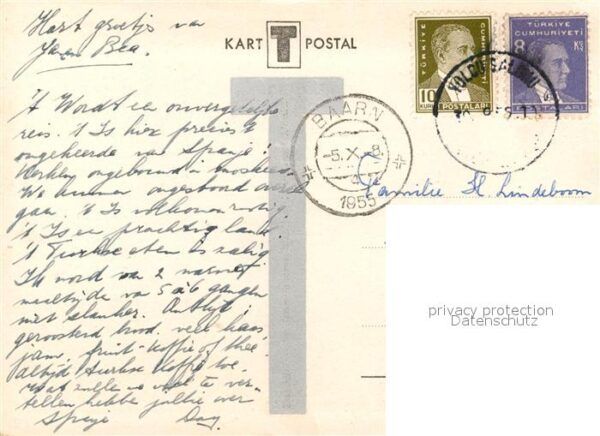 Hart groetjes van
KART T POSTAL
TÜRKİYE
CUMHURİYETİ
10
KURUŞ
POSTALARI
TÜRKİYE
CUMHURİYETİ
8 Kş
POSTALARI
BAARN
-5.X -8
1955
Familie H Lindeboom
't Wordt een onvergetelijke
reis. 't Is hier precies 't
omgekeerde van Spanje!
We kunnen ongestoord overal
gaan. 't Is volkomen rustig
't Is een prachtig land.
't Turkse eten is zalig
Ik word van 2 warme
maaltijden van 5 à 6 gangen
niet slanker. Ontbijt:
geroosterd brood, veel kaas
jam, fruit - koffie of thee
altijd turkse koffie toe.
Wat zullen we veel te ver-
tellen hebben jullie over
Spanje Dag
privacy protection
Datenschutz